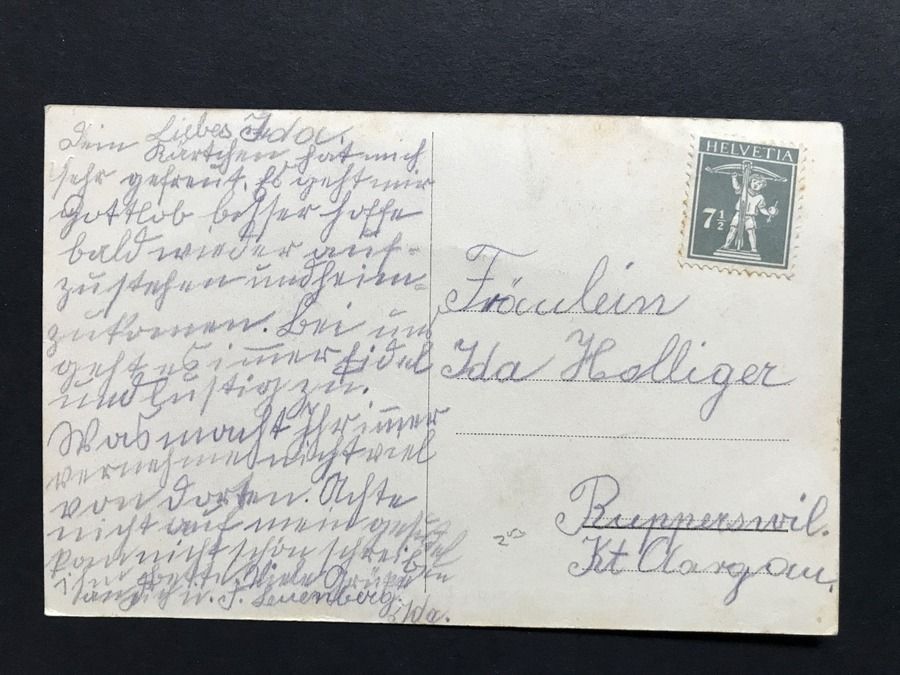 Liebes Ida.
Dein Kärtchen hat mich
sehr gefreut. Es geht mir
gottlob besser hoffe
bald wieder auf-
zustehen und heim-
zukomen. Bei uns
geht es immer fidel
und lustig zu.
Was macht Ihr immer
vernehme nicht viel
von dorten. Achte
nicht auf mein gesudel
kann nicht schön schreiben
im Bette. Viele Grüße
J. Leuenberg.
Ida.
HELVETIA
7½
Fräulein
Ida Holliger
Rupperswil.
Kt Aargau.